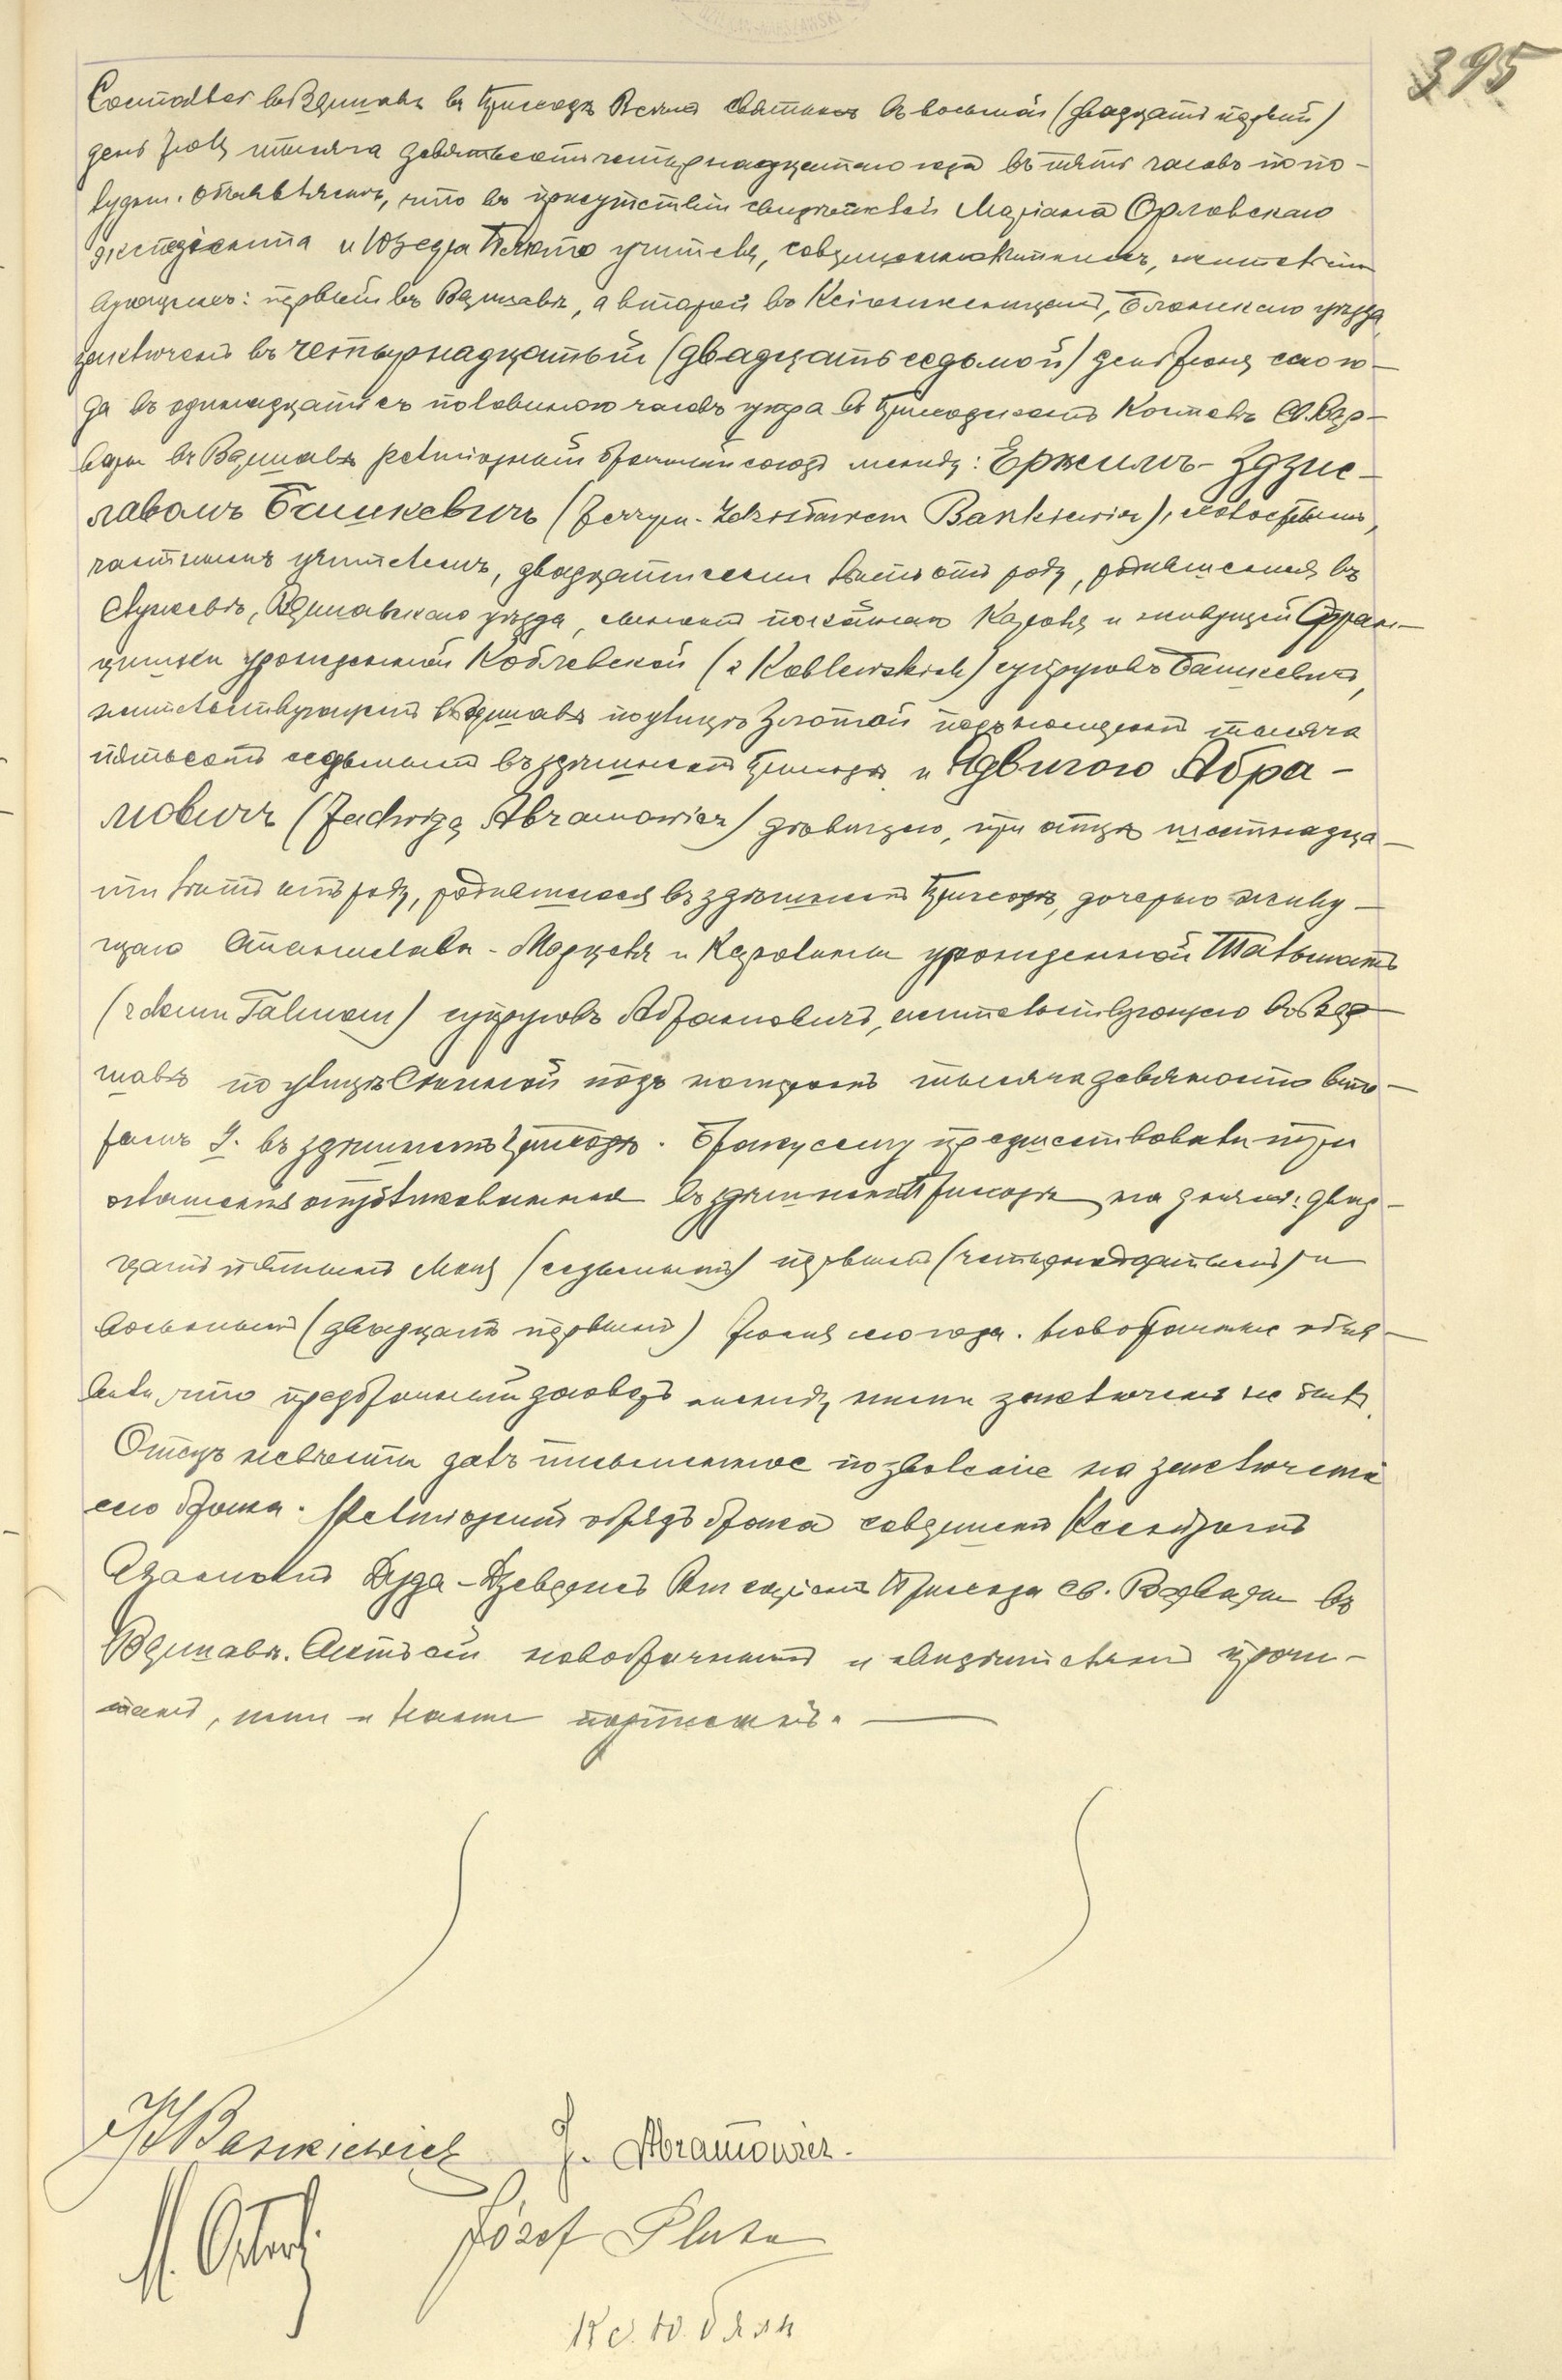 395
Состоялось въ Варшавѣ въ приходѣ Всѣхъ Святыхъ въ восьмой (двадцать первый)
день Іюля тысяча девятьсотъ четырнадцатаго года въ пять часовъ попо-
лудни. Объявляемъ, что въ присутствіи свидѣтелей Маріана Орловскаго
и Юзефа учителя, совершеннолѣтнихъ, жительствую-
щихъ: первый въ Варшавѣ, а второй въ Блонскаго уѣзда,
заключенъ въ четырнадцатый (двадцать седьмой) день Іюня сего го-
да въ одиннадцать съ половиною часовъ утра въ приходскомъ Костелѣ Св. Вар-
вары въ Варшавѣ религіозный брачный союзъ между: Ержимъ-Здзис-
лавомъ Башкевичъ (Jerzym-Zdzisławem Baśkiewicz), холостымъ,
частнымъ учителемъ, двадцати семи лѣтъ отъ роду, родившимся въ
Варшавскаго уѣзда, сыномъ покойнаго Кароля и живущей Фран-
цишки урожденной Коблевской (z Koblewskich) супруговъ Башкевичъ,
жительствующимъ въ Варшавѣ по улицѣ Злотой подъ номеромъ тысяча
пятьсотъ седьмымъ въ здѣшнемъ приходѣ и Ядвигою Абра-
мовичъ (Jadwigą Abramowicz) дѣвицею, при отцѣ, шестнадца-
ти лѣтъ отъ роду, родившеюся въ здѣшнемъ приходѣ, дочерью живу-
щаго Станислава-Марцелія и Каролины урожденной Тальманъ
(z domu Talman) супруговъ Абрамовичъ, жительствующею въ Вар-
шавѣ по улицѣ Сѣнной подъ номеромъ тысяча девяносто вто-
рымъ въ здѣшнемъ приходѣ. Браку сему предшествовали три
оглашенія опубликованныя въ здѣшнемъ приходѣ, двад-
цать пятаго Мая (седьмаго) перваго (четырнадцатаго) и
восьмаго (двадцать перваго) Іюня сего года. Новобрачные объя-
вили что предбрачный договоръ между ними заключенъ не былъ.
Отецъ невѣсты далъ письменное позволеніе на заключеніе
сего брака. Религіозный обрядъ брака совершенъ Ксендзомъ
Дуда-Дзевержъ Викаріемъ Прихода Св. Варвары въ
Варшавѣ. Актъ сей новобрачнымъ и свидѣтелямъ прочи-
танъ, ими и нами подписанъ.
Baśkiewicz J. Abramowicz.
M. Orłowski Józef Pluta
Кс. Ю.